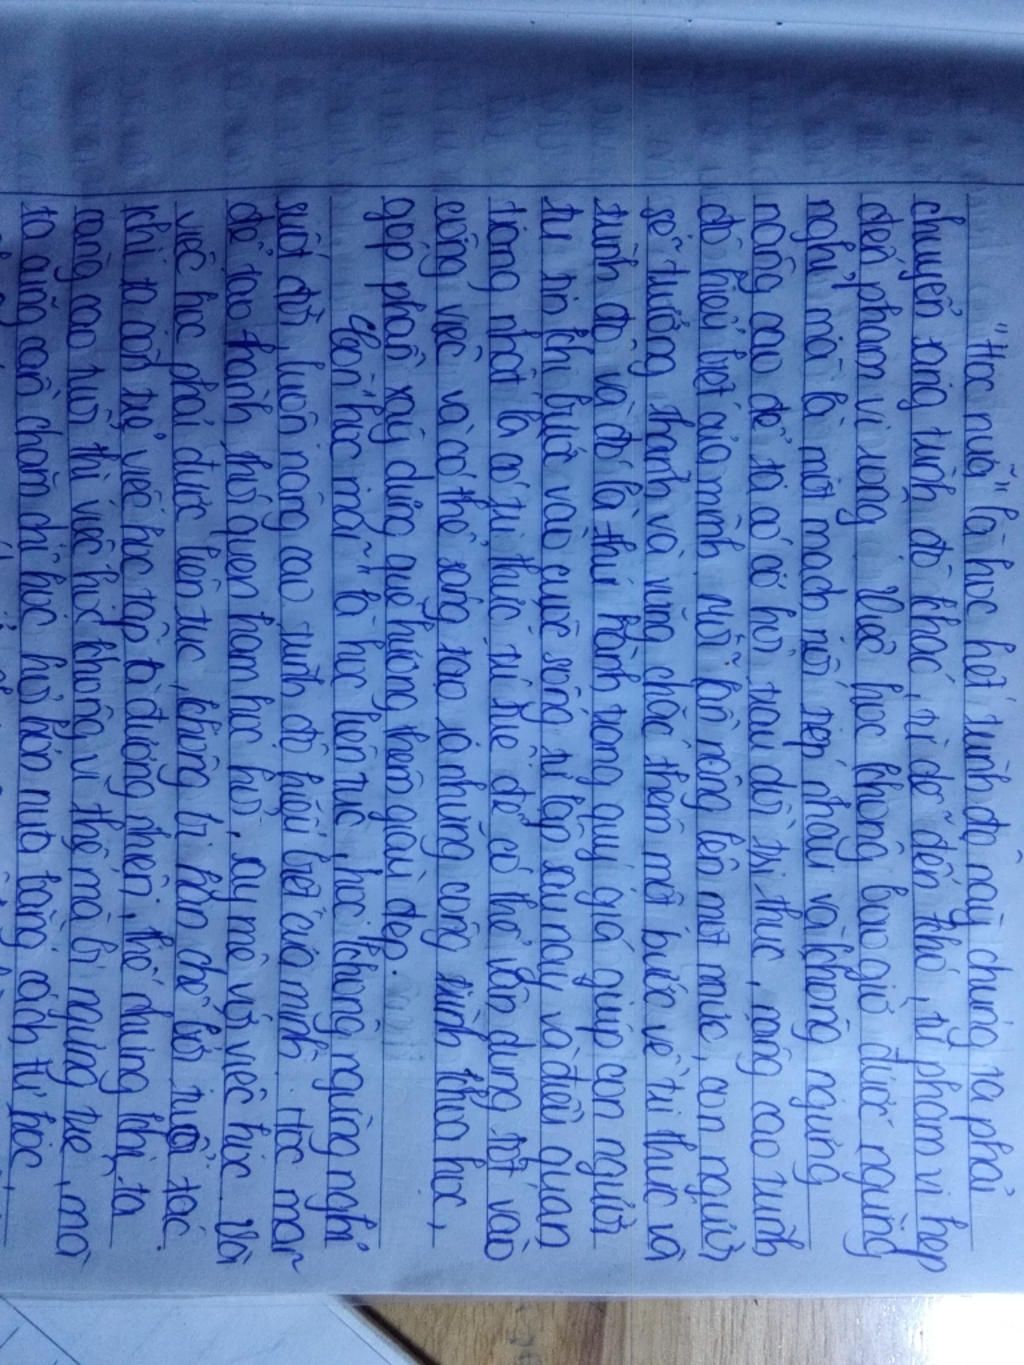 "Học nữa" là học hết trình độ này chúng ta phải
chuyển sang trình độ khác, từ dễ đến khó, từ phạm vi hẹp
đến phạm vi rộng. Việc học không bao giờ được ngừng
nghỉ mà là một mạch nối tiếp nhau và không ngừng
nâng cao để ta có cơ hội trau dồi tri thức, nâng cao trình
độ hiểu biết của mình. Mỗi lần nâng lên một mức, con người
sẽ trưởng thành và vững chắc thêm một bước về tri thức và
trình độ và đó là thứ hành trang quý giá giúp con người
tự tin khi bước vào cuộc sống tự lập sau này và điều quan
trọng nhất là có tri thức trí tuệ để có thể vận dụng tốt vào
công việc và có thể sáng tạo ra những công trình khoa học,
góp phần xây dựng quê hương thêm giàu đẹp.
Còn "học mãi" là học liên tục, học không ngừng nghỉ
suốt đời, luôn nâng cao trình độ hiểu biết của mình. Học mãi
để tạo thành thói quen ham học hỏi, say mê với việc học. Và
việc học phải được liên tục, không bị hạn chế bởi tuổi tác.
Khi ta còn trẻ việc học tập là đương nhiên, thế nhưng khi ta
càng cao tuổi thì việc học không vì thế mà bị ngưng trệ, mà
ta cũng cần chăm chỉ học hỏi hơn nữa bằng cách tự học